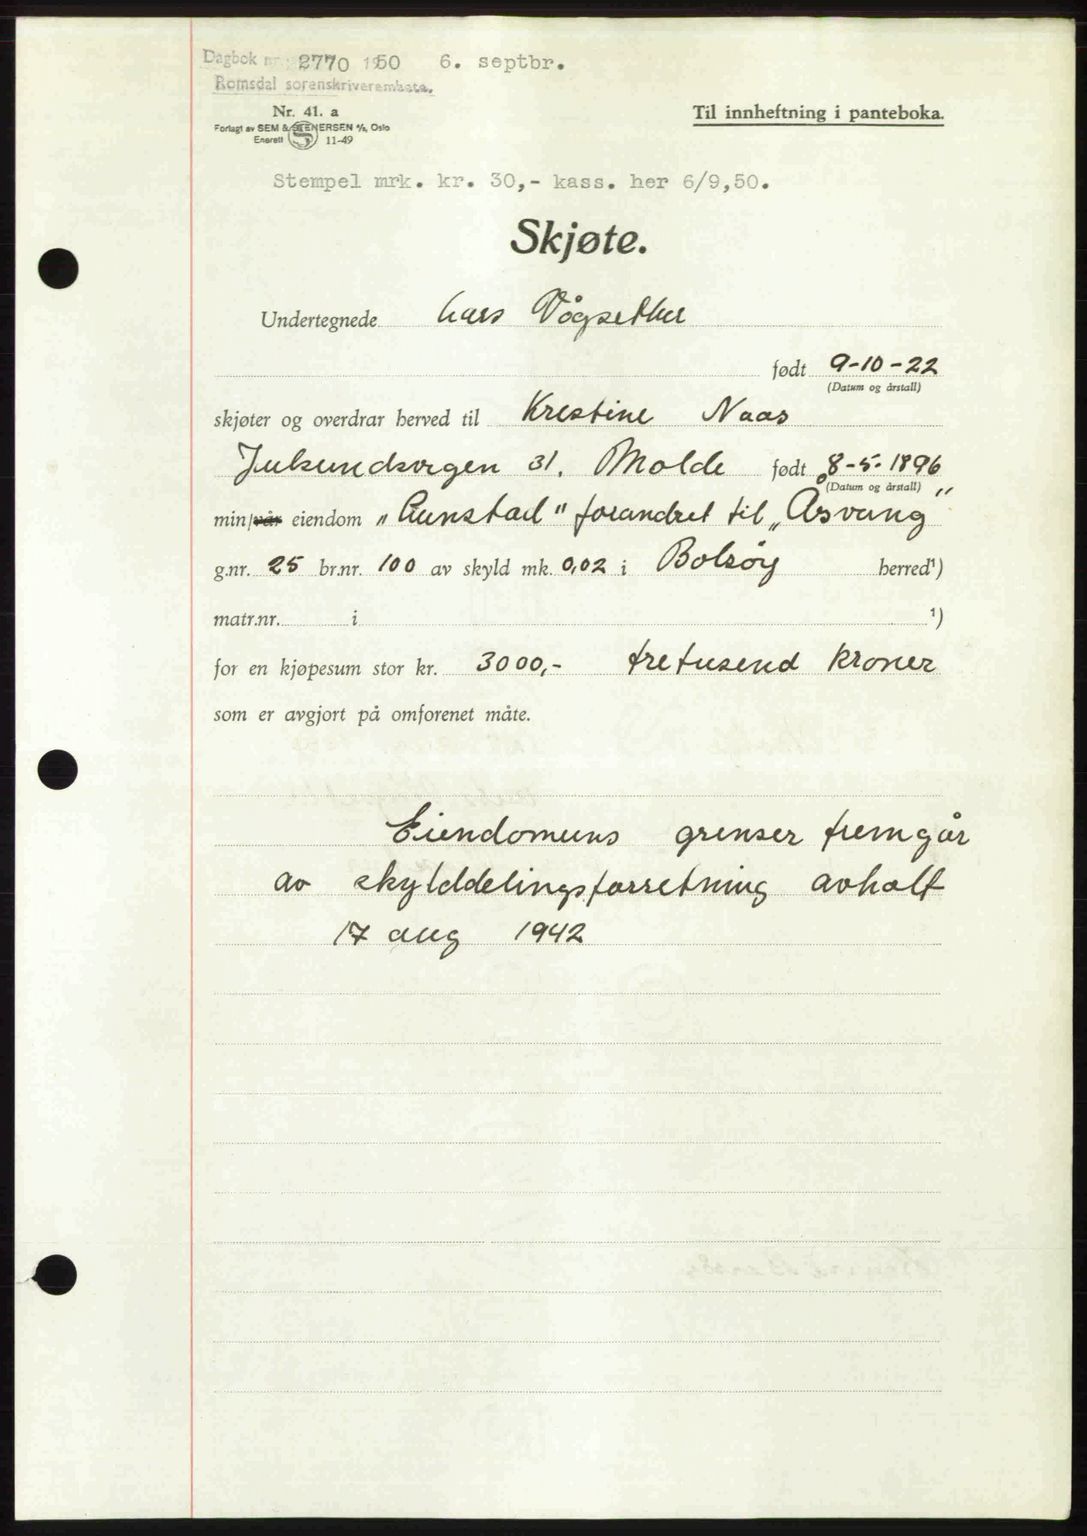 Dagbok nr. 2770 1950 6. septbr.
Romsdal sorenskriverembete.
Nr. 41. a
Forlagt av SEM & STENERSEN A/S, Oslo
Enerett 11-49
Til innheftning i panteboka.
Stempel mrk. kr. 30,- kass. her 6/9,50.
Skjøte.
Undertegnede Lars Vågsether
født 9-10-22
(Datum og årstall)
skjøter og overdrar herved til Krestine Naas
Julsundvegen 31. Molde født 8-5-1896
(Datum og årstall)
min/vår eiendom "Aunstad" forandret til "Åsvang"
g.nr. 25 br.nr. 100 av skyld mk. 0,02 i Bolsøy herred¹)
matr.nr. i ¹)
for en kjøpesum stor kr. 3000,- tretusend kroner
som er avgjort på omforenet måte.
Eiendomens grenser fremgår
av skylddelingsforretning avholt
17 aug 1942